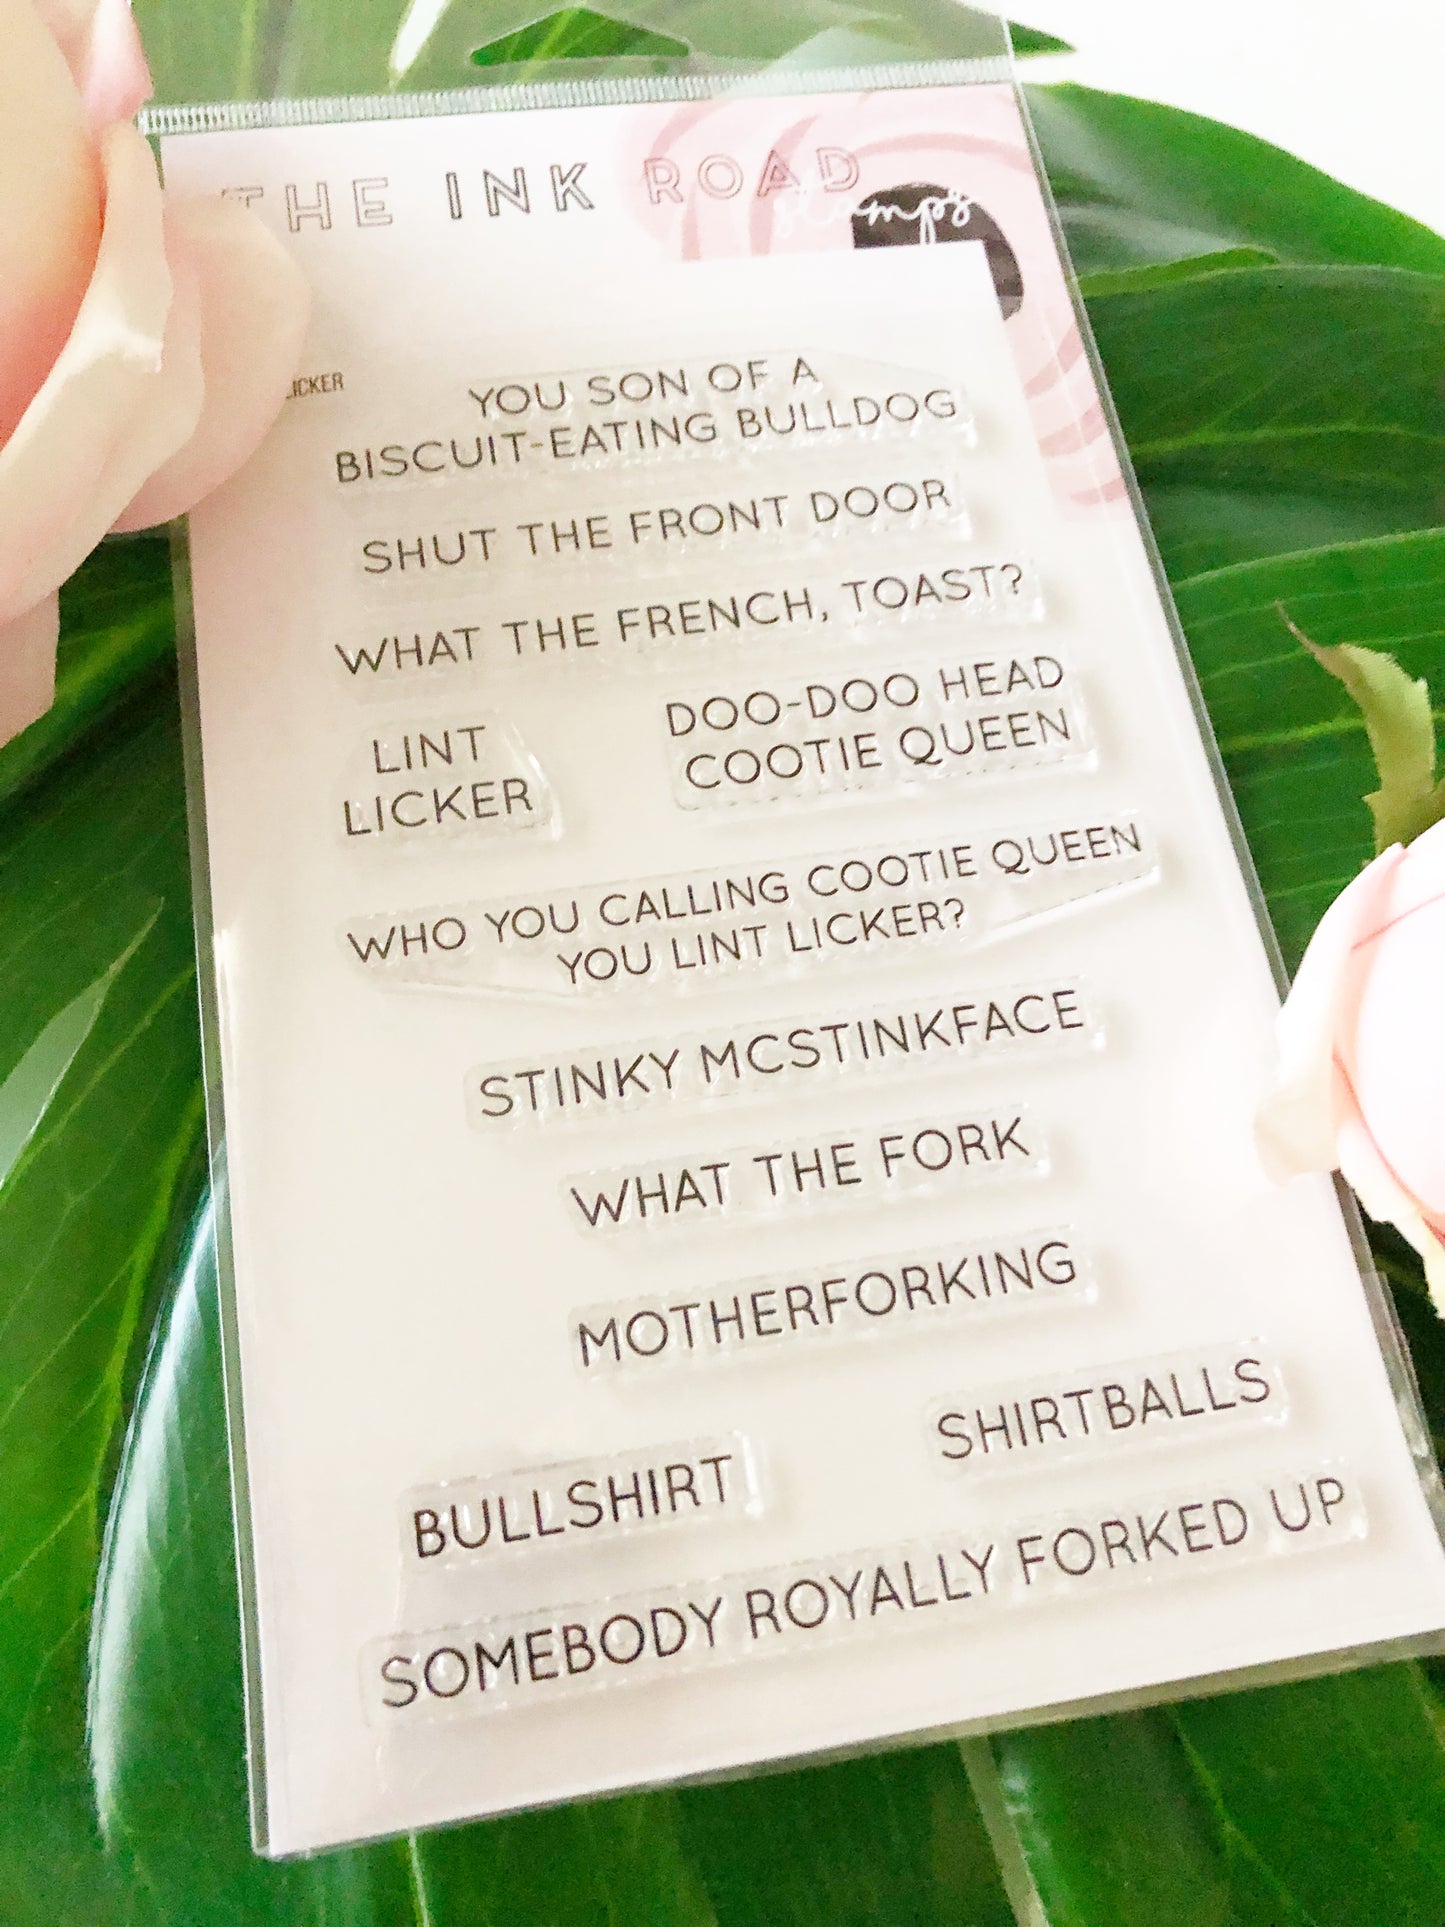 THE INK ROAD
stamps
LICKER
YOU SON OF A
BISCUIT-EATING BULLDOG
SHUT THE FRONT DOOR
WHAT THE FRENCH, TOAST?
LINT
LICKER
DOO-DOO HEAD
COOTIE QUEEN
WHO YOU CALLING COOTIE QUEEN
YOU LINT LICKER?
STINKY MCSTINKFACE
WHAT THE FORK
MOTHERFORKING
SHIRTBALLS
BULLSHIRT
SOMEBODY ROYALLY FORKED UP